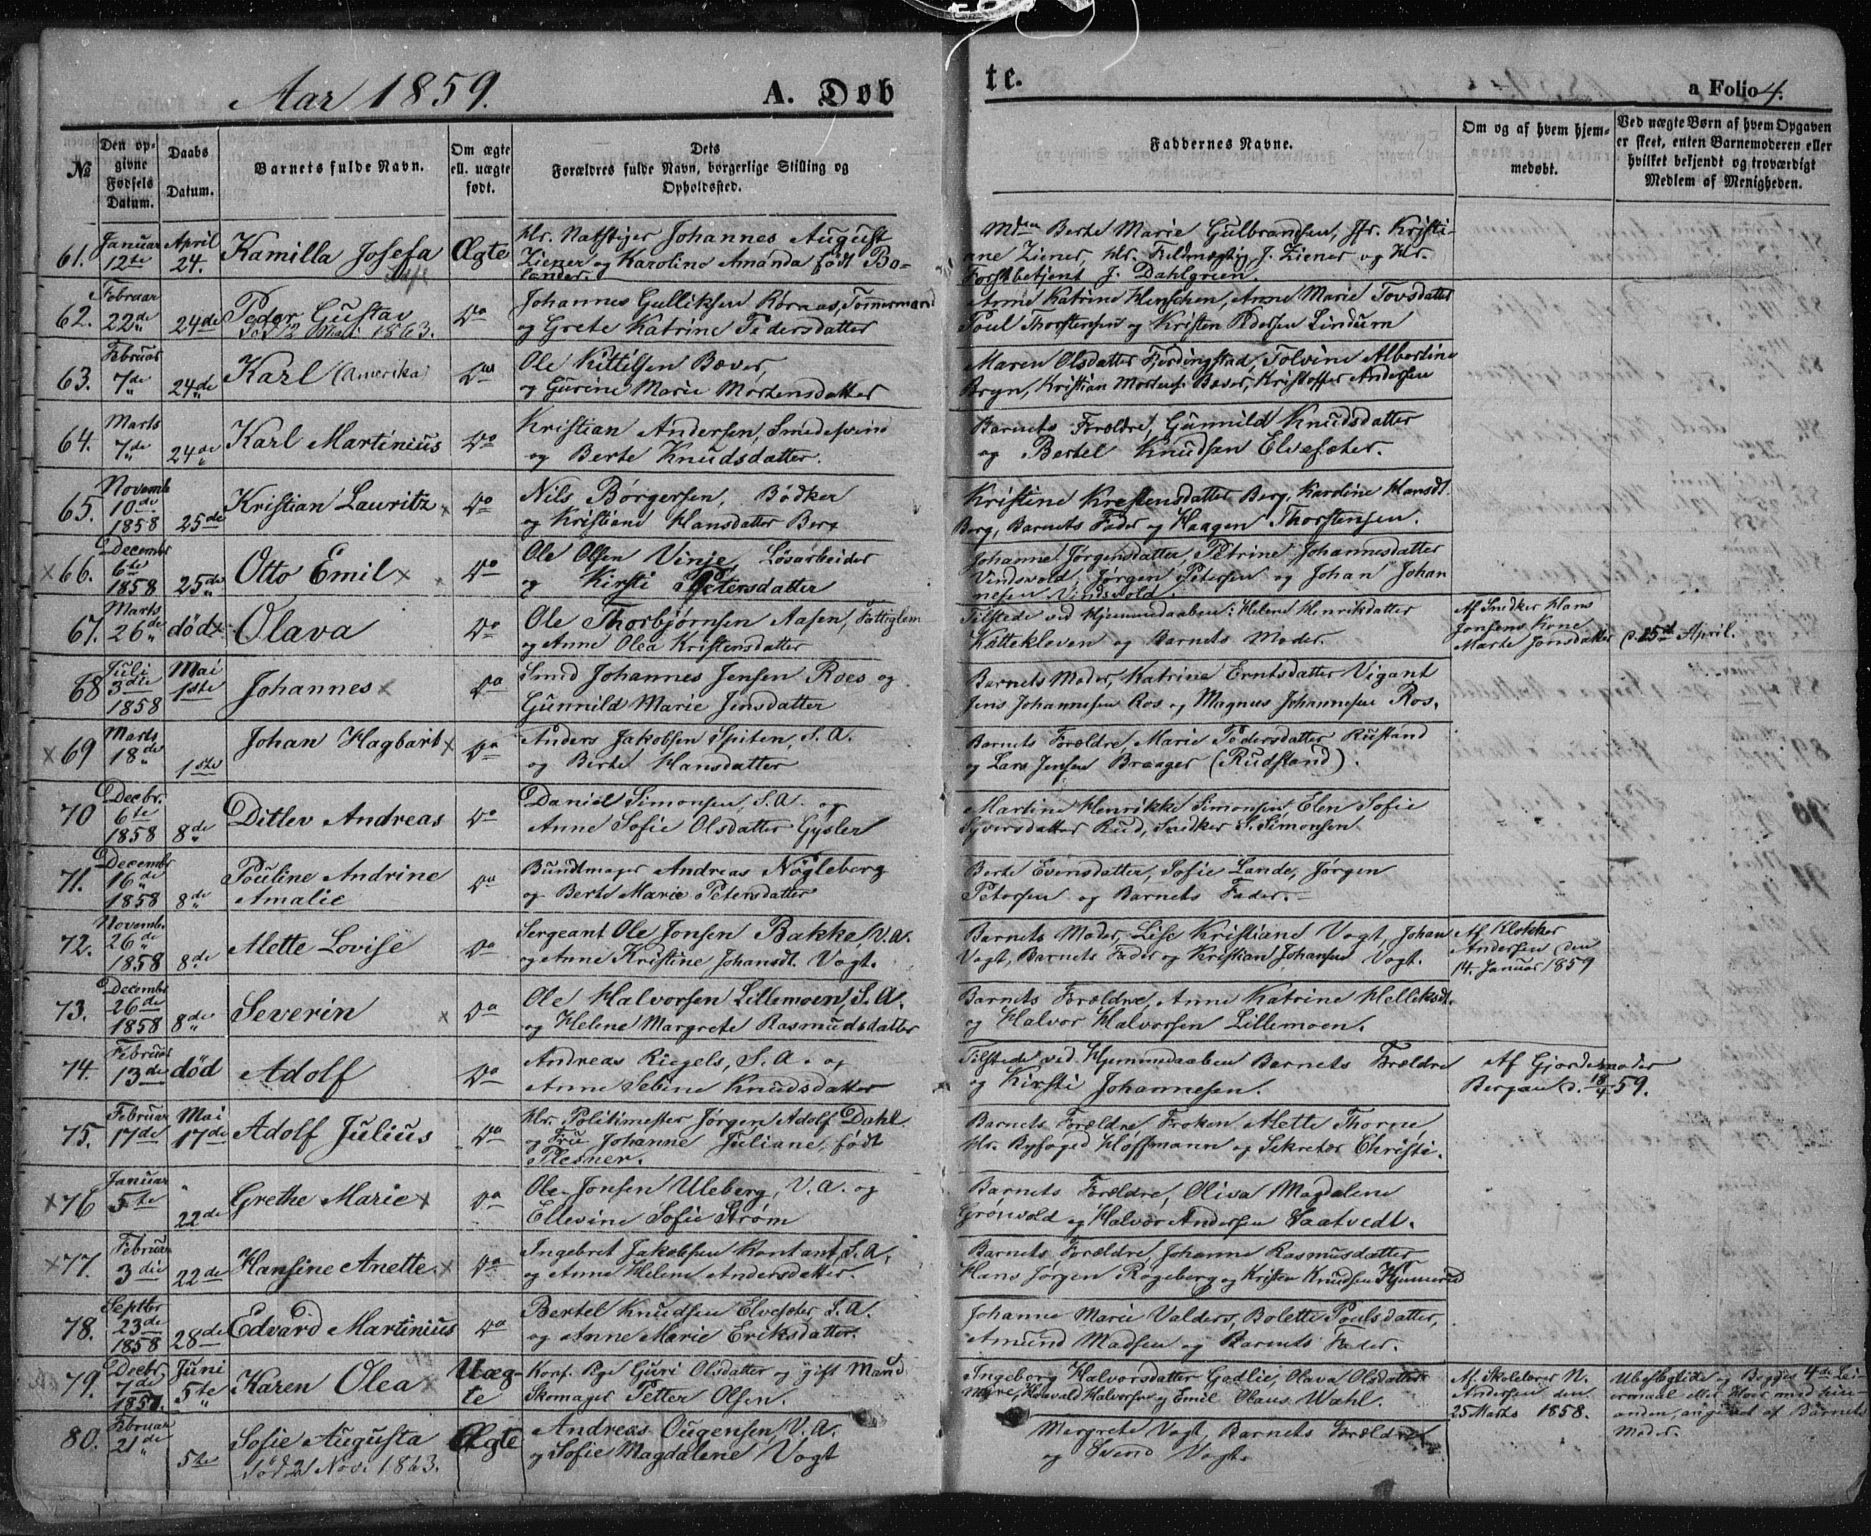 Aar 1859. A. Døb
te. a Folio 4.
№
Den opgivne Fødsels Datum.
Daabs Datum.
Barnets fulde Navn.
Om ægte ell. uægte født.
Dets Forældres fulde Navn, borgerlige Stilling og Opholdssted.
Faddernes Navne.
Om og af hvem hjemmedøbt.
Ved uægte Børn af hvem Opgaven er skeet, enten Barnemoderen eller hvilket bekjendt og troværdigt Medlem af Menigheden.
61. Januar 12te April 24. Kamilla Josefa Ægte Hr. Johannes August
Ziener og Karoline Amanda født Bolander
Mdm Berte Marie Gulbrandsen, Jfr. Kristiane Ziener, Hr. Feldmægtig J. Ziener og Hr.
Forstbetjent J. Dahlgreen
62. Februar 22de 24de Peder Gustav Do Johannes Gulliksen Røraas, Tømmermand
død 2 Mai 1863. og Grete Katrine Pedersdatter
Anne Katrine Henschen, Anne Marie Tovsdatter
Poul Thorstensen og Kristen Pedersen Lindum
63. Februar 7de 24de Karl (Amerika) Do Ole Kittilsen Bæver,
og Gurine Marie Mortensdatter
Maren Olsdatter Fordingstad, Tolvine Albertine
Bryn, Kristian Mortens. Bæver, Kristoffer Andersen
64. Marts 7de 24de Karl Martinius Do Kristian Andersen, Smedesvend
og Berte Knudsdatter.
Barnets Forældre, Gunnild Knudsdatter
og Bertel Knudsen Elvesæter.
65. Novemb. 10de 1858 25de Kristian Lauritz x Do Nils Børgersen, Bødker
og Kristiane Hansdatter Berg
Kristine Kristensdatter Berg, Karoline Hansdt.
Berg, Barnets Fader og Haagen Thorstensen.
x 66. Decembr 6te 1858 25de Otto Emil x Do Ole Olsen Vinje, Løsarbeider
og Kirsti Petersdatter
Johanne Jørgensdatter, Petrine Johannesdatter
Vindsvold, Jørgen Petersen og Johan Johannesen Vindsvold.
67. Marts 26de død x Olava Do Ole Thorbjørnsen Aasen, Fattiglem
og Anne Olea Kristensdatter
Tilstede ved Hjemmedaaben: Helene Henriksdatter
Kattekleven og Barnets Moder.
Af Snedker Hans
Jonsens Kone
Marte Jonsdatter d. 25de April.
68 Juli 3die 1858 Mai 1ste Johannes x Do Smed Johannes Jensen Roes og
Gunnild Marie Jensdatter
Barnets Moder, Katrine Erntsdatter Vigant
Jens Johannesen Ros og Magnus Johannesen Ros.
x 69 Marts 18de 1ste Johan Hagbart x Do Anders Jakobsen Spiten, S. A.
og Berte Hansdatter
Barnets Forældre, Marie Pedersdatter Rustand
og Lars Jensen Braager (Rudstand).
70 Decbr. 6te 1858 8de Ditlev Andreas Do Daniel Simonsen, S. A. og
Anne Sofie Olsdatter Gysler
Martine Henrikke Simonsen, Elen Sofie
Syversdatter Rud, Snedker S. Simonsen.
71. Decembr 16de 1858 8de Pouline Andrine Amalie Do Bundtmager Andreas Nøgleberg
og Berte Marie Petersdatter
Berte Evensdatter, Sofie Lande, Jørgen
Petersen og Barnets Fader.
72. Novemb. 26de 1858 8de Mette Lovise Do Sergeant Ole Jonsen Bakke, V. A.
og Anne Kristine Johansdt. Vogt.
Barnets Moder, Lise Kristiane Vogt, Johan
Vogt, Barnets Fader og Kristian Johansen Vogt.
Af Klokker
Andersen den
14. Januar 1859
73. Decembr 26de 1858 8de Severin x Do Ole Halvorsen Lillemoen, S. A.
og Helene Margrete Rasmudsdatter
Barnets Forældre, Anne Katrine Helliksdt.
og Halvor Halvorsen Lillemoen.
74. Februar 13de død Adolf Do Andreas Riegels, S. A. og
Anne Seline Knudsdatter
Tilstede ved Hjemmedaaben Barnets Forældre
og Kirsti Johannesen.
Af Gjordemoder
Bergan d. 18/4 59.
75. Februar 17de Mai 17de Adolf Julius Do Hr. Politimester Jørgen Adolf Dahl
og Fru Johanne Juliane, født
Plesner.
Barnets Forældre, Frøken Mette Thorne
Hr. Byfoged Hoffmann og Sekretær Christi.
x 76 Januar 5te 22de Grethe Marie x Do Ole Jonsen Uleberg, V. A. og
Ellevine Sofie Strøm
Barnets Forældre, Oliva Magdalene
Grønvold og Halvor Andersen Saatvedt.
x 77. Februar 3die 22de Hansine Anette x Do Ingebret Jakobsen Kontant, S. A.
og Anne Helene Andersdatter.
Barnets Forældre, Johanne Rasmusdatter
Hans Jørgen Røgeberg og Kristen Knudsen Hjemmerud
78. Septbr 23de 1858 28de Edvard Martinius Do Bertel Knudsen Elvesæter S. A.
og Anne Marie Eriksdatter.
Johanne Marie Valders, Bolette Poulsdatter,
Amund Madsen og Barnets Fader.
79. Decbr. 7de 1857. Juni 5te Karen Olea x Uægte Konf. Pge Guri Olsdatter og gift Mand
Skomager Petter Olsen.
Ingeborg Halvorsdatter Gadlie, Olava Olsdatter
Myre, Howald Halvorsen og Emil Olaus Wahl.
Af Skolelærer N.
Andersen den
25 Marts 1858.
Ubesvogrede og Begges 4de Leiermaal eller Hoer med hinanden, angivet af Barnets
Moder.
80. Februar 21de 5te Sofie Augusta Ægte Andreas Ougensen, V. A.
død 21 Nov. 1863. og Sofie Magdalene Vogt
Margrete Vogt, Barnets Forældre
og Svend Vogt.